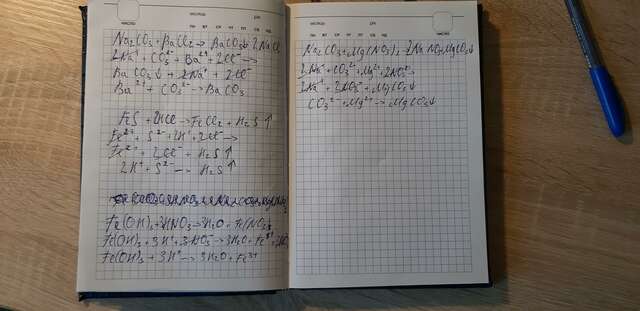 Na₂CO₃ + BaCl₂ → BaCO₃↓ 2NaCl
2Na⁺ + CO₃²⁻ + Ba²⁺ + 2Cl⁻ →
BaCO₃↓ + 2Na⁺ + 2Cl⁻
Ba²⁺ + CO₃²⁻ → BaCO₃
FeS + 2HCl → FeCl₂ + H₂S↑
Fe²⁺ + S²⁻ + 2H⁺ + 2Cl⁻ →
Fe²⁺ + 2Cl⁻ + H₂S↑
2H⁺ + S²⁻ → H₂S↑
Fe(OH)₃ + 3HNO₃ → 3H₂O + Fe(NO₃)₃
Fe(OH)₃ + 3H⁺ + 3NO₃⁻ → 3H₂O + Fe³⁺ +
Fe(OH)₃ + 3H⁺ → 3H₂O + Fe³⁺
ЧИСЛО МЕСЯЦ ДЛЯ
ПН ВТ СР ЧТ ПТ СБ ВС
Na₂CO₃ + Mg(NO₃)₂ → 2NaNO₃ + MgCO₃↓
2Na⁺ + CO₃²⁻ + Mg²⁺ + 2NO₃⁻ →
2Na⁺ + 2NO₃⁻ + MgCO₃↓
CO₃²⁻ + Mg²⁺ → MgCO₃↓